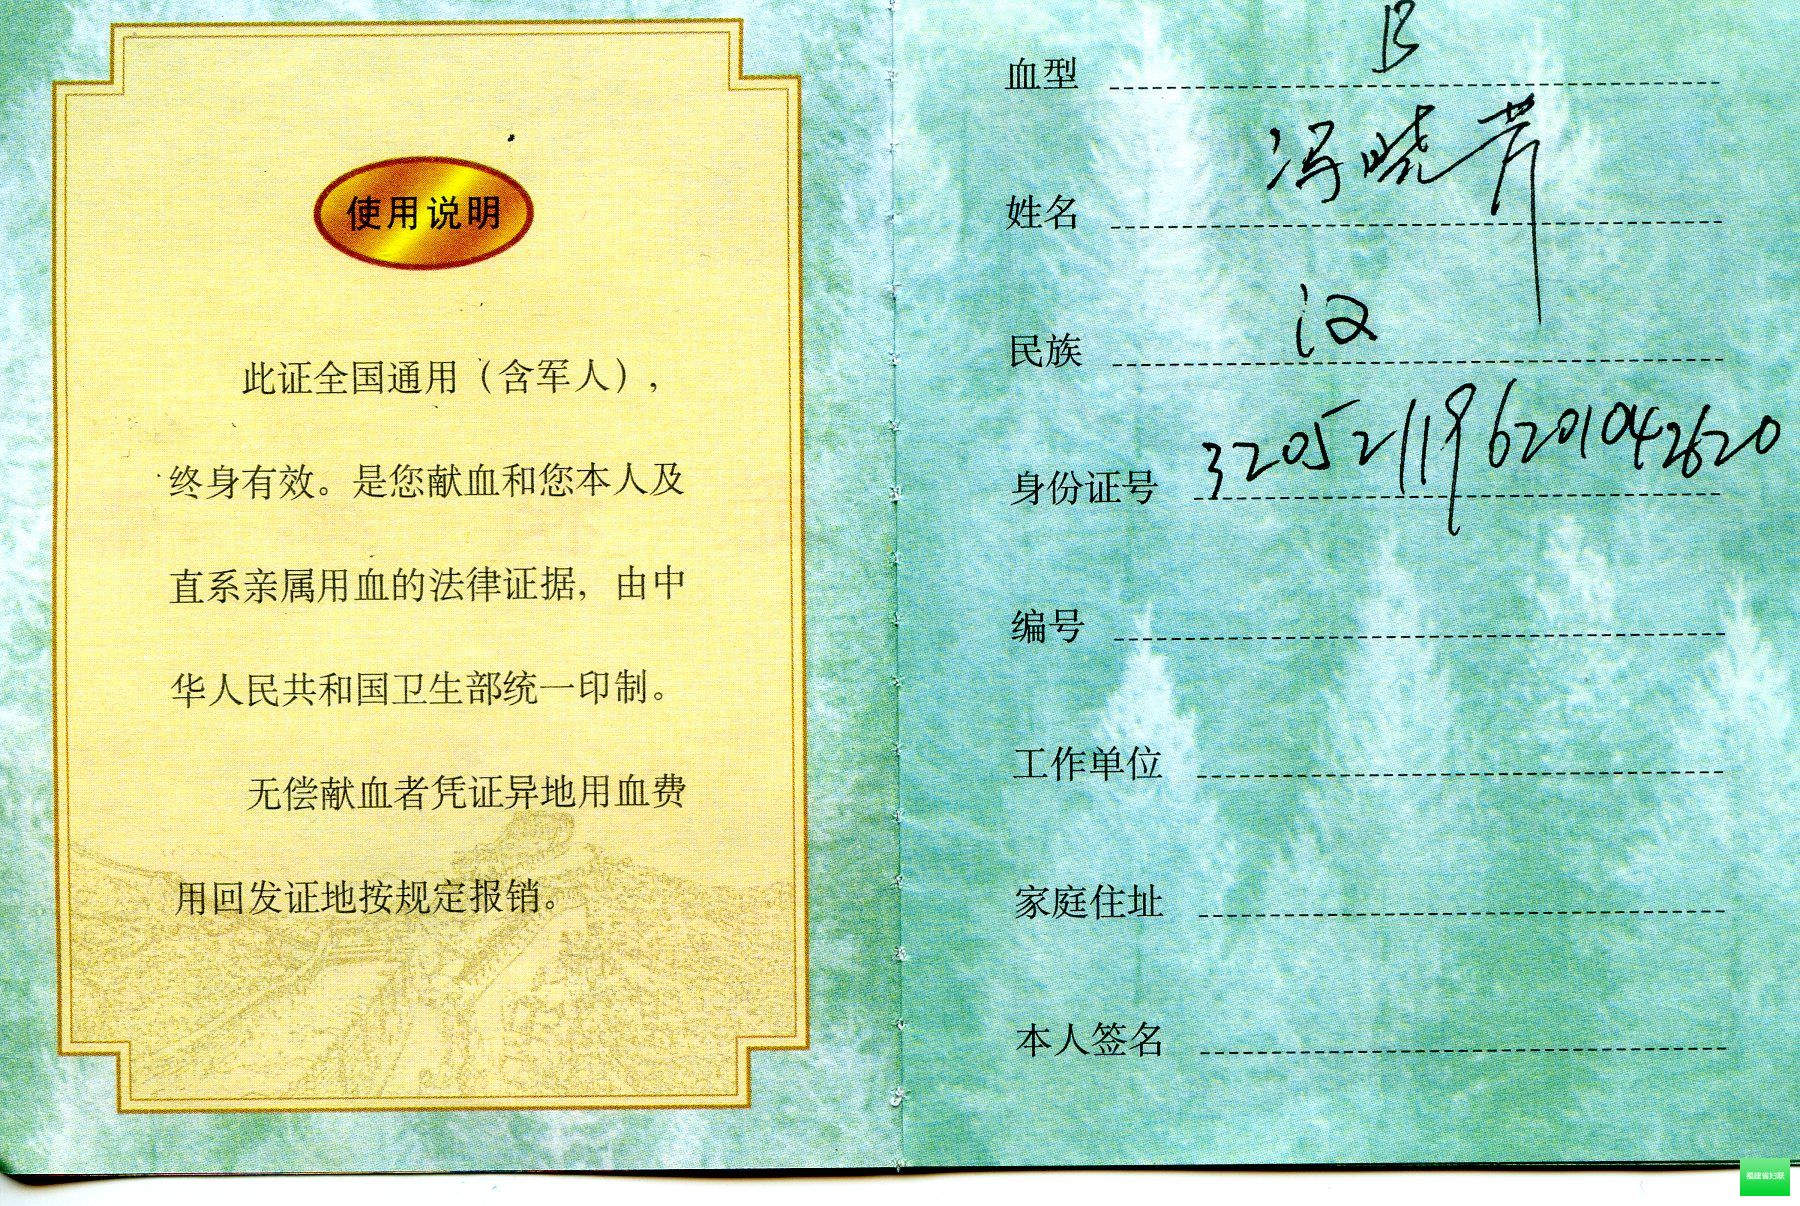 使用说明
此证全国通用（含军人），
终身有效。是您献血和您本人及
直系亲属用血的法律证据，由中
华人民共和国卫生部统一印制。
无偿献血者凭证异地用血费
用回发证地按规定报销。
血型 B
姓名 冯晓芳
民族 汉
身份证号 320521196201042620
编号
工作单位
家庭住址
本人签名
福建省妇联